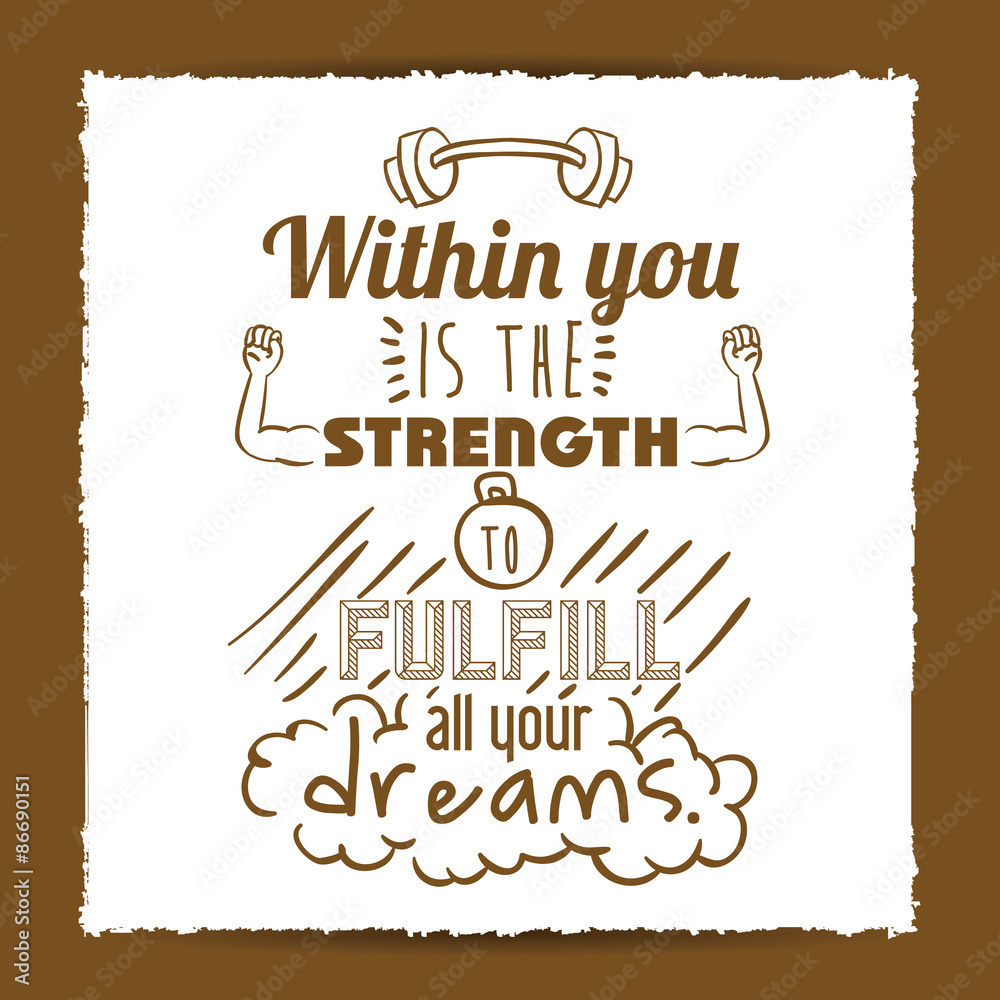 Within you
IS THE
STRENGTH
TO
FULFILL
all your
dreams.
Adobe Stock | #86690151